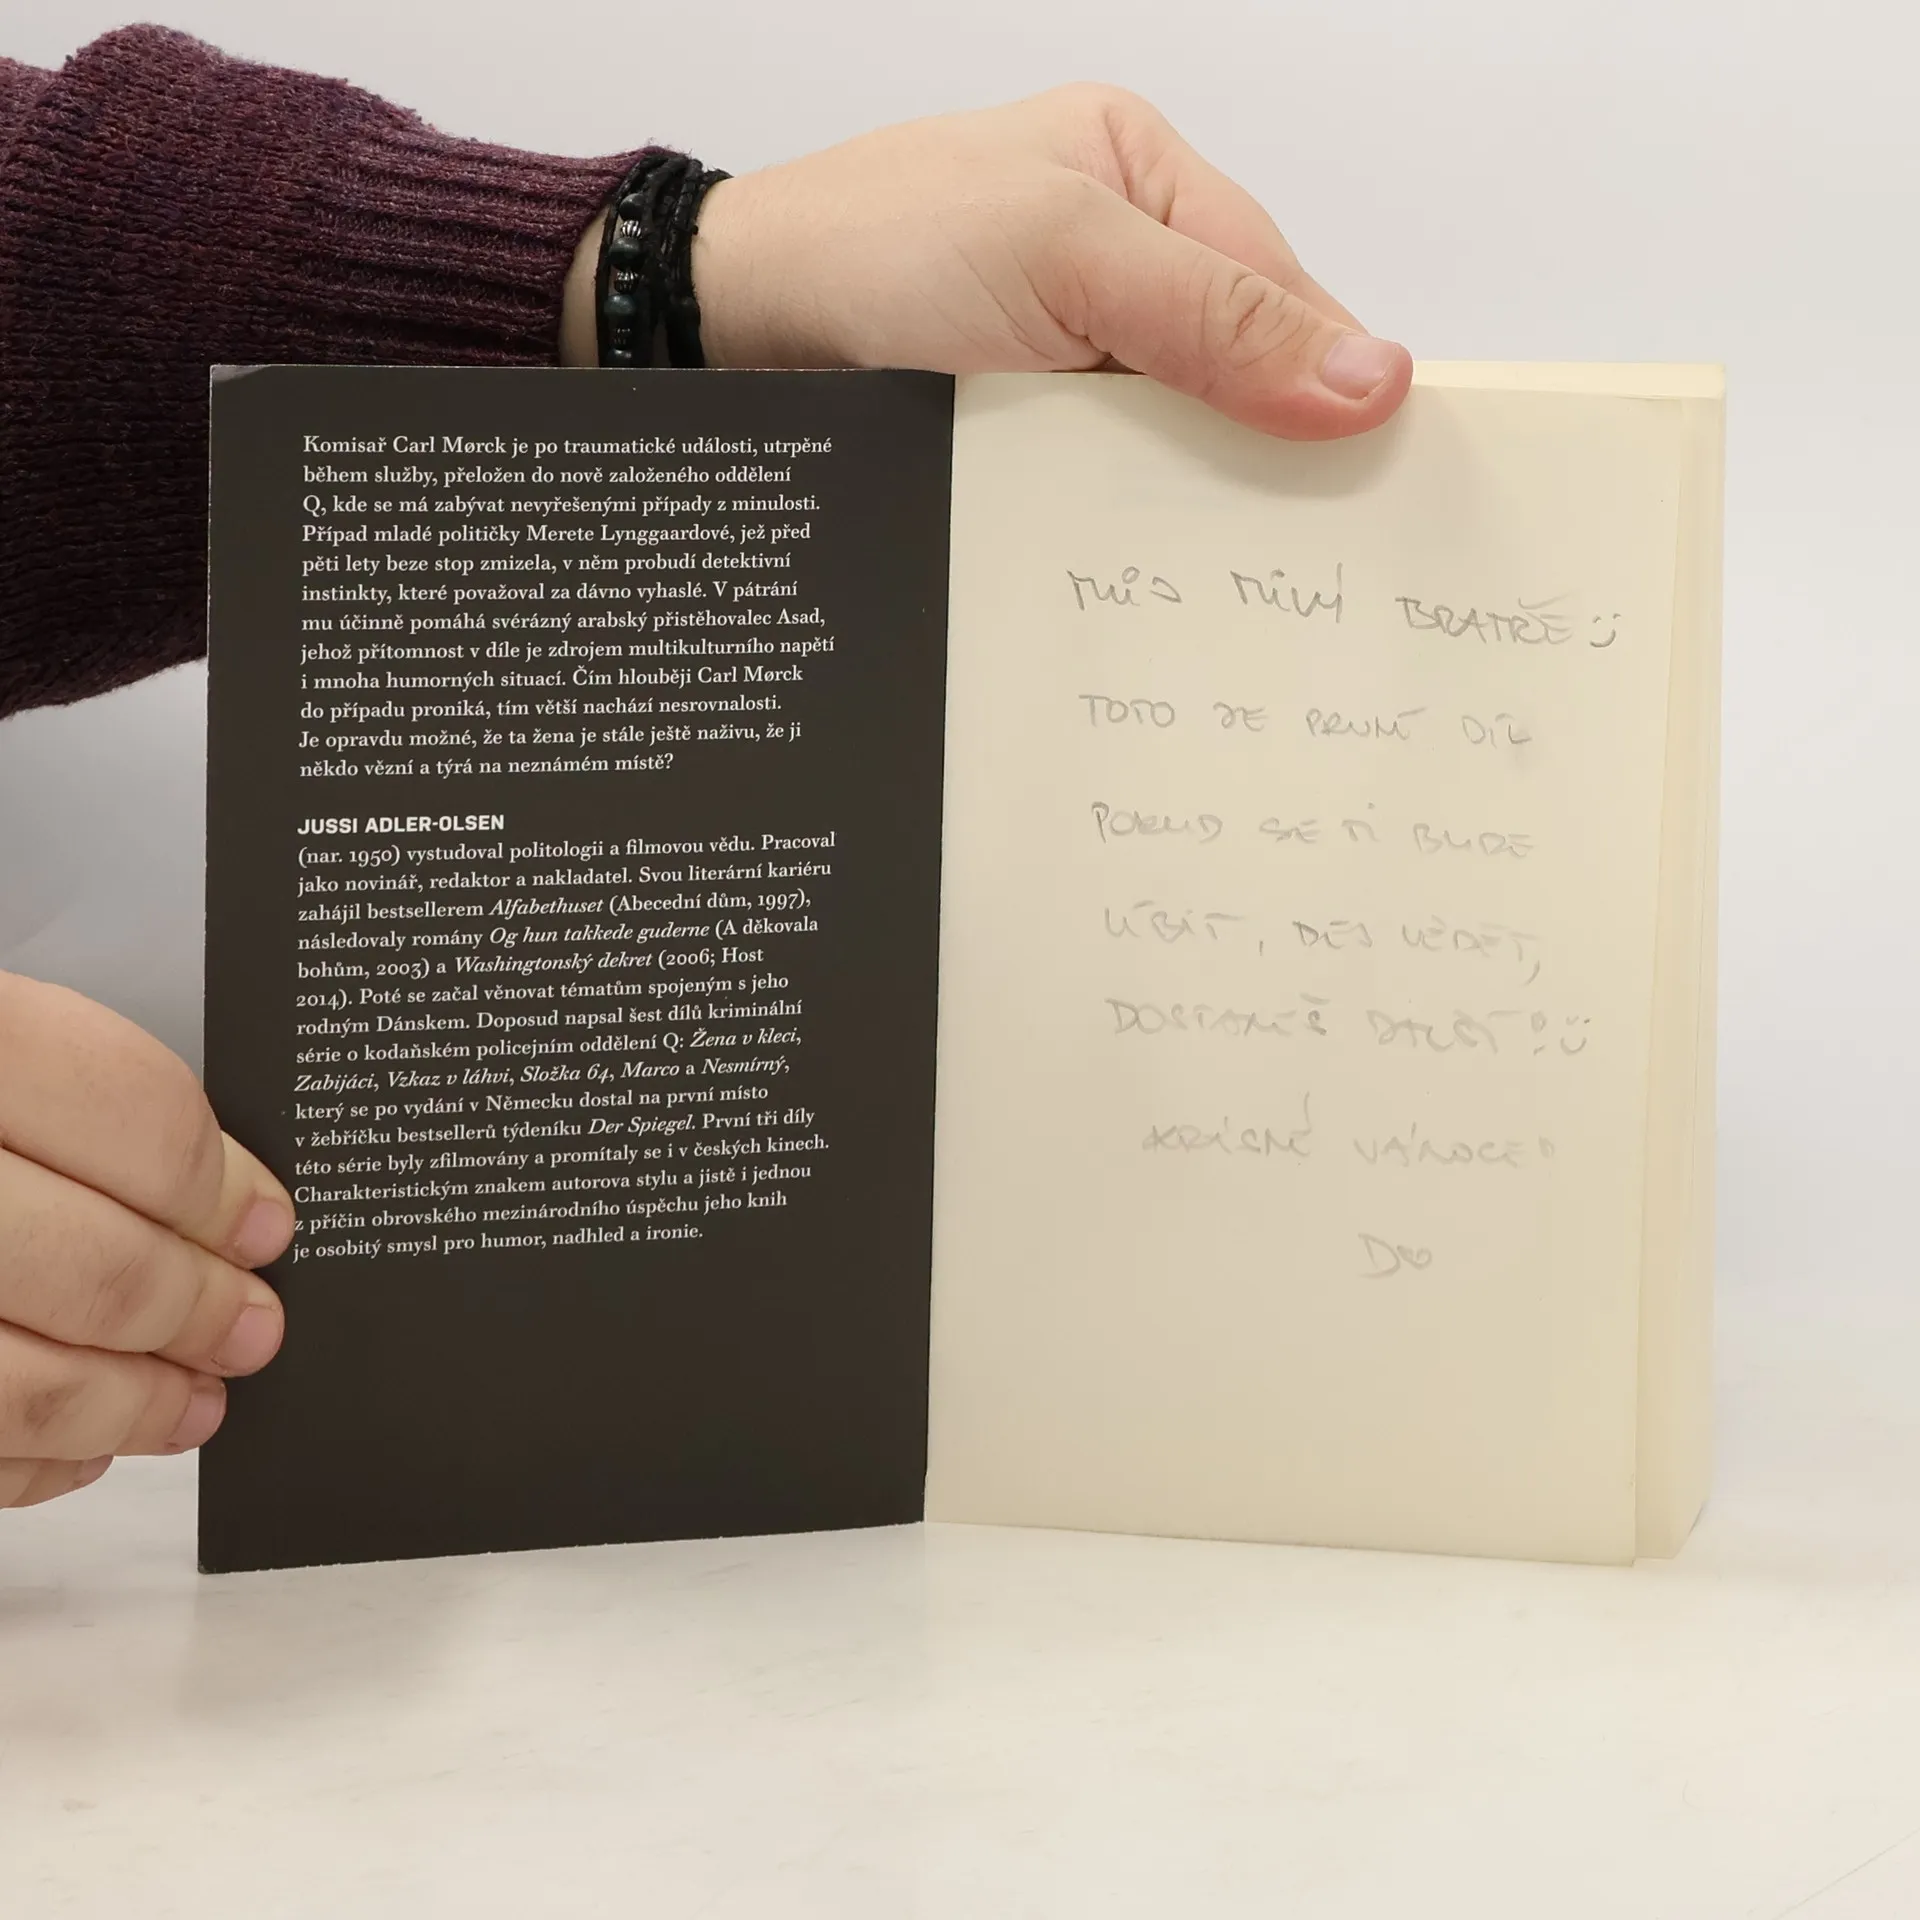 Komisař Carl Mørck je po traumatické události, utrpěné
během služby, přeložen do nově založeného oddělení
Q, kde se má zabývat nevyřešenými případy z minulosti.
Případ mladé političky Merete Lynggaardové, jež před
pěti lety beze stop zmizela, v něm probudí detektivní
instinkty, které považoval za dávno vyhaslé. V pátrání
mu účinně pomáhá svérázný arabský přistěhovalec Asad,
jehož přítomnost v díle je zdrojem multikulturního napětí
i mnoha humorných situací. Čím hlouběji Carl Mørck
do případu proniká, tím větší nachází nesrovnalosti.
Je opravdu možné, že ta žena je stále ještě naživu, že ji
někdo vězní a týrá na neznámém místě?
JUSSI ADLER-OLSEN
(nar. 1950) vystudoval politologii a filmovou vědu. Pracoval
jako novinář, redaktor a nakladatel. Svou literární kariéru
zahájil bestsellerem Alfabethuset (Abecední dům, 1997),
následovaly romány Og hun takkede guderne (A děkovala
bohům, 2003) a Washingtonský dekret (2006; Host
2014). Poté se začal věnovat tématům spojeným s jeho
rodným Dánskem. Doposud napsal šest dílů kriminální
série o kodaňském policejním oddělení Q: Žena v kleci,
Zabijáci, Vzkaz v láhvi, Složka 64, Marco a Nesmírný,
který se po vydání v Německu dostal na první místo
v žebříčku bestsellerů týdeníku Der Spiegel. První tři díly
této série byly zfilmovány a promítaly se i v českých kinech.
Charakteristickým znakem autorova stylu a jistě i jednou
z příčin obrovského mezinárodního úspěchu jeho knih
je osobitý smysl pro humor, nadhled a ironie.
MŮJ MILÝ BRATŘE :)
TOTO JE PRVNÍ DÍL
POKUD SE TI BUDE
LÍBIT, DEJ VĚDĚT,
DOSTANEŠ DALŠÍ! :)
KRÁSNÉ VÁNOCE!